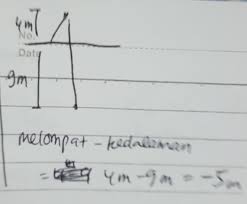 4m
No.
Date
9m
melompat - kedalaman
= 4m - 9m = -5m